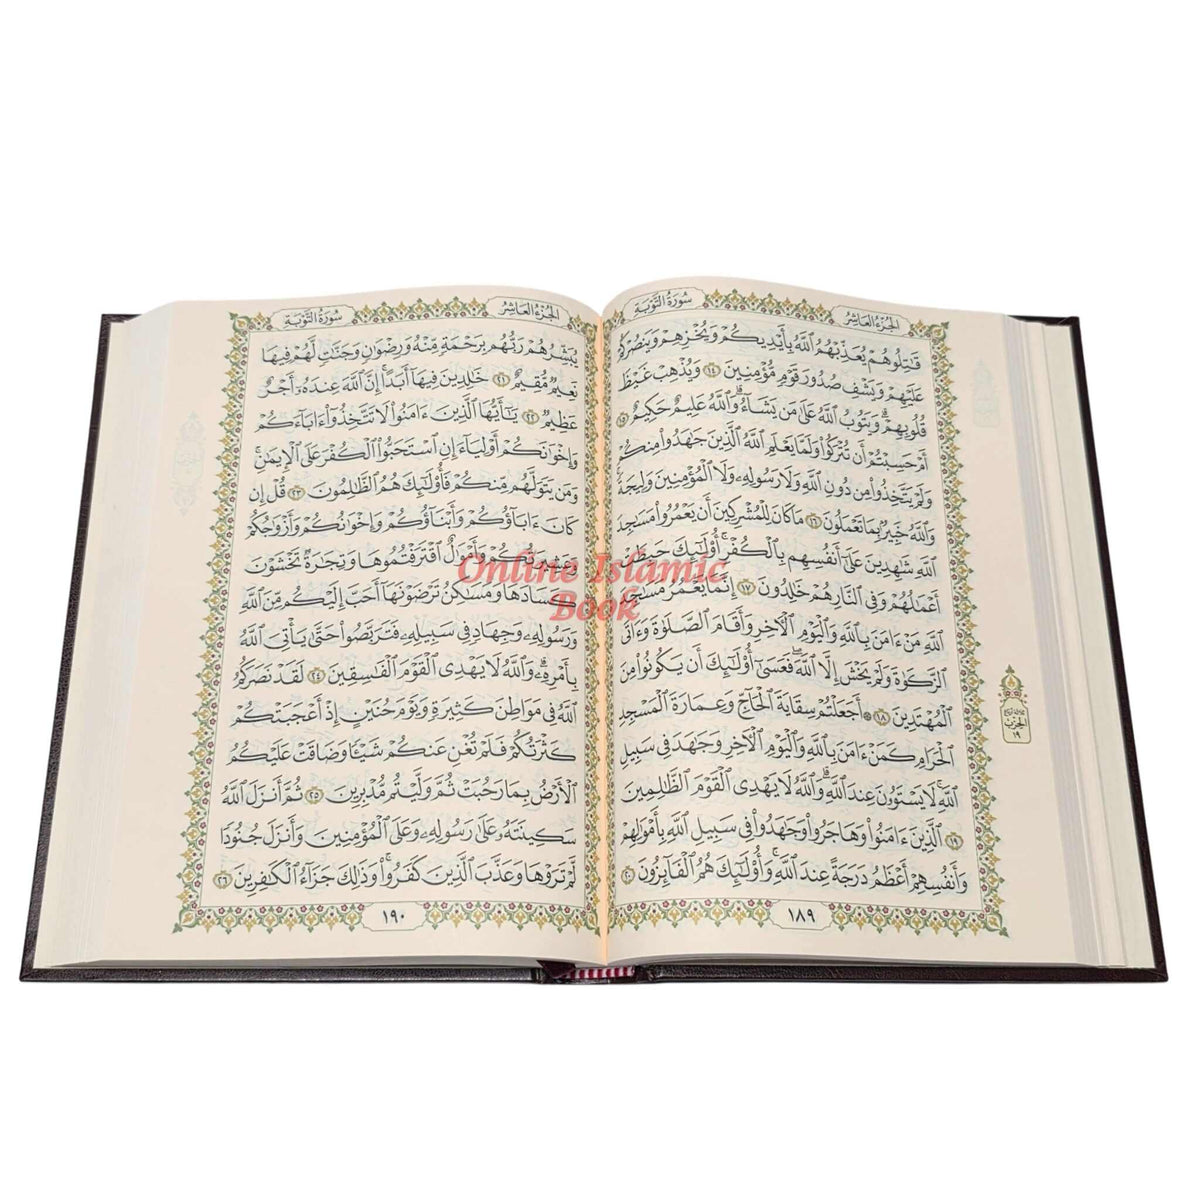 سُورَةُ التَّوْبَةِ
الجُزْءُ العَاشِرُ
قَٰتِلُوهُمْ يُعَذِّبْهُمُ ٱللَّهُ بِأَيْدِيكُمْ وَيُخْزِهِمْ وَيَنصُرْكُمْ
عَلَيْهِمْ وَيَشْفِ صُدُورَ قَوْمٍ مُّؤْمِنِينَ ١٤ وَيُذْهِبْ غَيْظَ
قُلُوبِهِمْ وَيَتُوبُ ٱللَّهُ عَلَىٰ مَن يَشَآءُ وَٱللَّهُ عَلِيمٌ حَكِيمٌ ١٥
أَمْ حَسِبْتُمْ أَن تُتْرَكُوا۟ وَلَمَّا يَعْلَمِ ٱللَّهُ ٱلَّذِينَ جَٰهَدُوا۟ مِنكُمْ
وَلَمْ يَتَّخِذُوا۟ مِن دُونِ ٱللَّهِ وَلَا رَسُولِهِۦ وَلَا ٱلْمُؤْمِنِينَ وَلِيجَةً ۚ
وَٱللَّهُ خَبِيرٌۢ بِمَا تَعْمَلُونَ ١٦ مَا كَانَ لِلْمُشْرِكِينَ أَن يَعْمُرُوا۟ مَسَٰجِدَ
ٱللَّهِ شَٰهِدِينَ عَلَىٰٓ أَنفُسِهِم بِٱلْكُفْرِ ۚ أُو۟لَٰٓئِكَ حَبِطَتْ
أَعْمَٰلُهُمْ وَفِى ٱلنَّارِ هُمْ خَٰلِدُونَ ١٧ إِنَّمَا يَعْمُرُ مَسَٰجِدَ
ٱللَّهِ مَنْ ءَامَنَ بِٱللَّهِ وَٱلْيَوْمِ ٱلْءَاخِرِ وَأَقَامَ ٱلصَّلَوٰةَ وَءَاتَى
ٱلزَّكَوٰةَ وَلَمْ يَخْشَ إِلَّا ٱللَّهَ ۖ فَعَسَىٰٓ أُو۟لَٰٓئِكَ أَن يَكُونُوا۟ مِنَ
ٱلْمُهْتَدِينَ ١٨ ۞ أَجَعَلْتُمْ سِقَايَةَ ٱلْحَآجِّ وَعِمَارَةَ ٱلْمَسْجِدِ
ٱلْحَرَامِ كَمَنْ ءَامَنَ بِٱللَّهِ وَٱلْيَوْمِ ٱلْءَاخِرِ وَجَٰهَدَ فِى سَبِيلِ
ٱللَّهِ ۚ لَا يَسْتَوُۥنَ عِندَ ٱللَّهِ ۗ وَٱللَّهُ لَا يَهْدِى ٱلْقَوْمَ ٱلظَّٰلِمِينَ
١٩ ٱلَّذِينَ ءَامَنُوا۟ وَهَاجَرُوا۟ وَجَٰهَدُوا۟ فِى سَبِيلِ ٱللَّهِ بِأَمْوَٰلِهِمْ
وَأَنفُسِهِمْ أَعْظَمُ دَرَجَةً عِندَ ٱللَّهِ ۚ وَأُو۟لَٰٓئِكَ هُمُ ٱلْفَآئِزُونَ ٢٠
١٨٩
الحِزْب
١٩
الجُزْءُ العَاشِرُ
سُورَةُ التَّوْبَةِ
يُبَشِّرُهُمْ رَبُّهُم بِرَحْمَةٍ مِّنْهُ وَرِضْوَٰنٍ وَجَنَّٰتٍ لَّهُمْ فِيهَا
نَعِيمٌ مُّقِيمٌ ٢١ خَٰلِدِينَ فِيهَآ أَبَدًا ۚ إِنَّ ٱللَّهَ عِندَهُۥٓ أَجْرٌ
عَظِيمٌ ٢٢ يَٰٓأَيُّهَا ٱلَّذِينَ ءَامَنُوا۟ لَا تَتَّخِذُوٓا۟ ءَابَآءَكُمْ
وَإِخْوَٰنَكُمْ أَوْلِيَآءَ إِنِ ٱسْتَحَبُّوا۟ ٱلْكُفْرَ عَلَى ٱلْإِيمَٰنِ ۚ
وَمَن يَتَوَلَّهُم مِّنكُمْ فَأُو۟لَٰٓئِكَ هُمُ ٱلظَّٰلِمُونَ ٢٣ قُلْ إِن
كَانَ ءَابَآؤُكُمْ وَأَبْنَآؤُكُمْ وَإِخْوَٰنُكُمْ وَأَزْوَٰجُكُمْ
وَعَشِيرَتُكُمْ وَأَمْوَٰلٌ ٱقْتَرَفْتُمُوهَا وَتِجَٰرَةٌ تَخْشَوْنَ
كَسَادَهَا وَمَسَٰكِنُ تَرْضَوْنَهَآ أَحَبَّ إِلَيْكُم مِّنَ ٱللَّهِ
وَرَسُولِهِۦ وَجِهَادٍ فِى سَبِيلِهِۦ فَتَرَبَّصُوا۟ حَتَّىٰ يَأْتِىَ ٱللَّهُ
بِأَمْرِهِۦ ۗ وَٱللَّهُ لَا يَهْدِى ٱلْقَوْمَ ٱلْفَٰسِقِينَ ٢٤ لَقَدْ نَصَرَكُمُ
ٱللَّهُ فِى مَوَاطِنَ كَثِيرَةٍ ۙ وَيَوْمَ حُنَيْنٍ ۙ إِذْ أَعْجَبَتْكُمْ
كَثْرَتُكُمْ فَلَمْ تُغْنِ عَنكُمْ شَيْـًٔا وَضَاقَتْ عَلَيْكُمُ
ٱلْأَرْضُ بِمَا رَحُبَتْ ثُمَّ وَلَّيْتُم مُّدْبِرِينَ ٢٥ ثُمَّ أَنزَلَ ٱللَّهُ
سَكِينَتَهُۥ عَلَىٰ رَسُولِهِۦ وَعَلَى ٱلْمُؤْمِنِينَ وَأَنزَلَ جُنُودًا
لَّمْ تَرَوْهَا وَعَذَّبَ ٱلَّذِينَ كَفَرُوا۟ ۚ وَذَٰلِكَ جَزَآءُ ٱلْكَٰفِرِينَ ٢٦
١٩٠
Online Islamic
Book